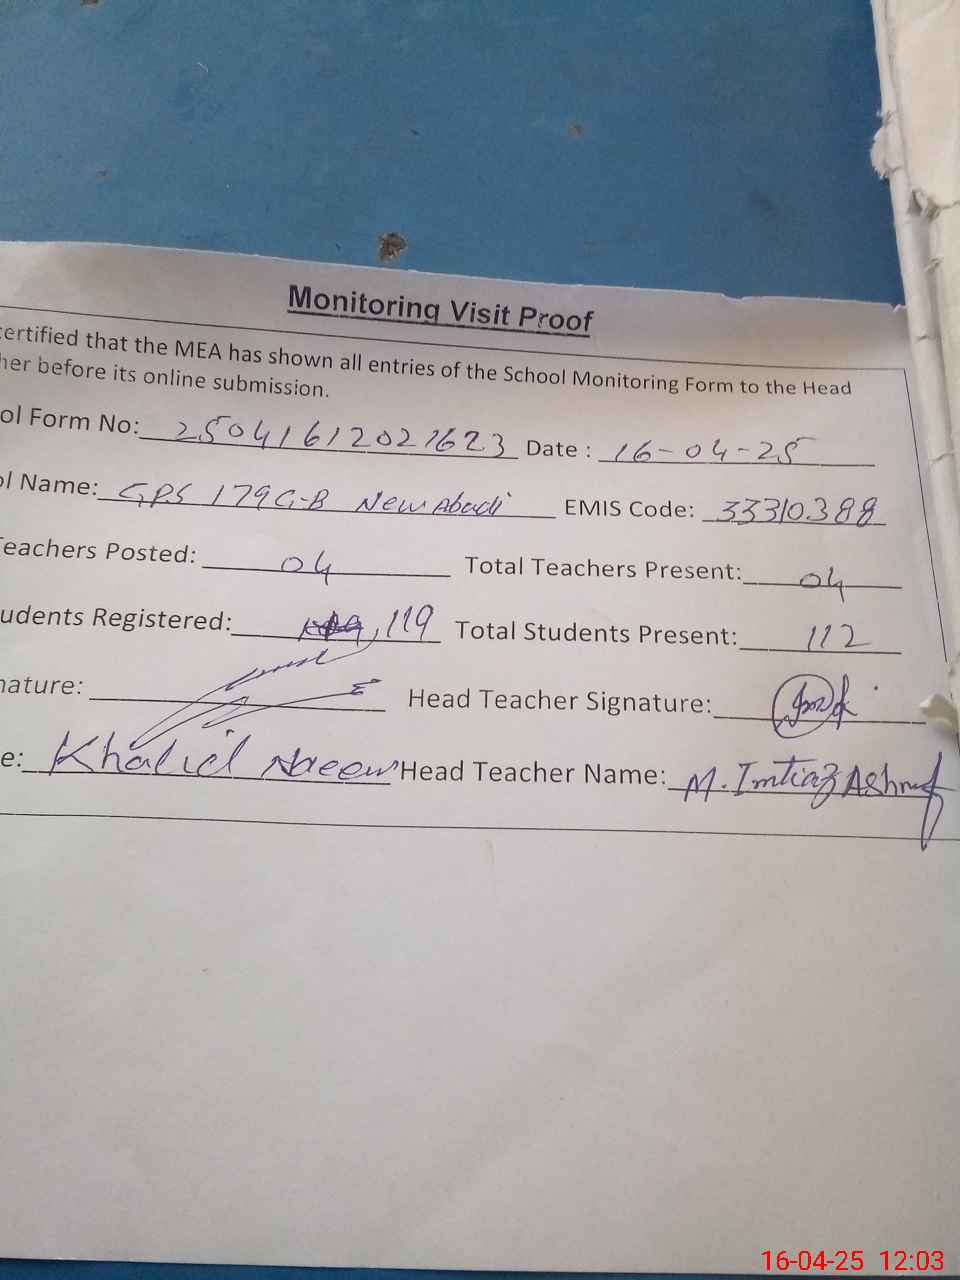 Monitoring Visit Proof
certified that the MEA has shown all entries of the School Monitoring Form to the Head
her before its online submission.
ol Form No: 2504161202 1623 Date : 16-04-25
ol Name: GPS 179 G-B New Abadi EMIS Code: 33310388
Teachers Posted: 04 Total Teachers Present: 04
udents Registered: 119 Total Students Present: 112
nature: Head Teacher Signature:
e: Khalid Naeem Head Teacher Name: M. Imtiaz Ashraf
16-04-25 12:03